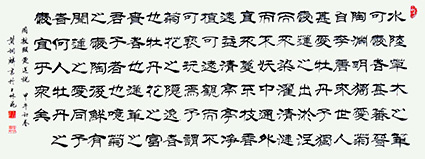 水陸草木之華
可愛者甚蕃晉
陶淵明獨愛菊
自李唐來世人
甚愛牡丹予獨
愛蓮之出淤泥
而不染濯清漣
而不妖中通外
直不蔓不枝香
遠益清亭亭淨
植可遠觀而不
可褻玩焉予謂
菊花之隱逸者
也牡丹花之富
貴者也蓮花之
君子者也噫菊
之愛陶後鮮有
聞蓮之愛同予
者何人牡丹之
愛宜乎眾矣
周敦頤愛蓮說 甲午初春